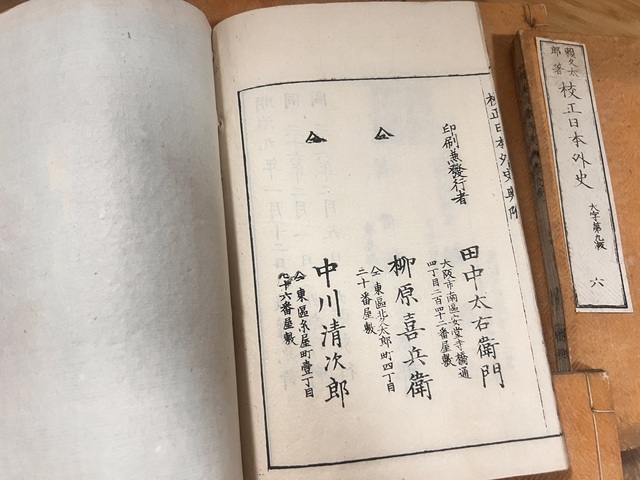 賴久太
郎著
校正日本外史
大字第九板
六
校正日本外史奥附
印刷兼發行者
田中太右衛門
大阪市南區安堂寺橋通
四丁目二百四十二番屋敷
仝
柳原喜兵衛
仝東區北久太郎町四丁目
三十番屋敷
仝
中川清次郎
仝東區糸屋町壹丁目
十六番屋敷